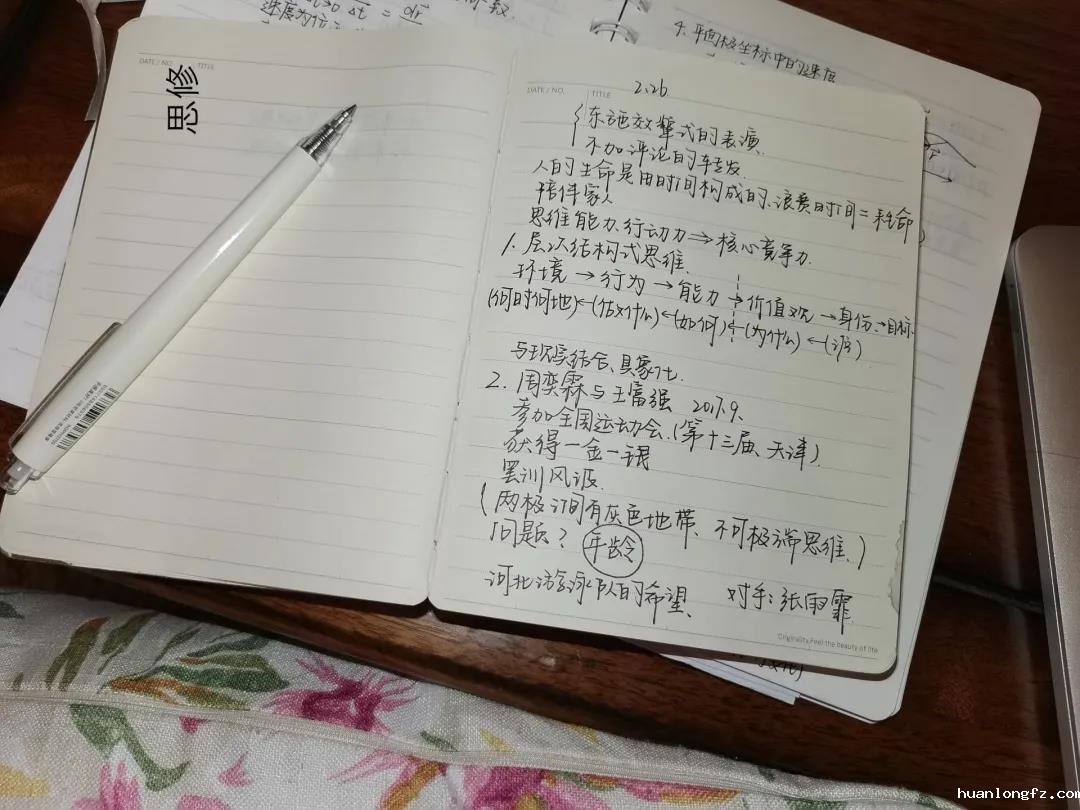 进度为
4. 平面极坐标中的速度
DATE / NO.
TITLE
思修
DATE / NO.
TITLE
2.26
东施效颦式的表演
不加评论的转发
人的生命是由时间构成的、浪费时间=耗命
陪伴家人
思维能力、行动力⇒核心竞争力
1. 层次结构式思维
环境→行为→能力→价值观→身份→目标
(何时何地)←(做什么)←(如何)←(为什么)←(谁)
与现实结合、具象化
2. 周奕霖与王富强 2017.9.
参加全国运动会.(第十三届、天津)
获得一金一银
罢训风波
(两极订间有灰色地带、不可极端思维.)
问题? 年龄
河北游泳队的希望、 对手:张雨霏
Originality.Feel the beauty of life
huanlongfz.com